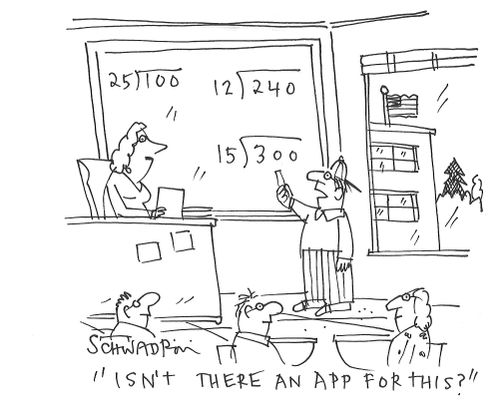 25)100
12)240
15)300
SCHWADRON
"ISN'T THERE AN APP FOR THIS?"